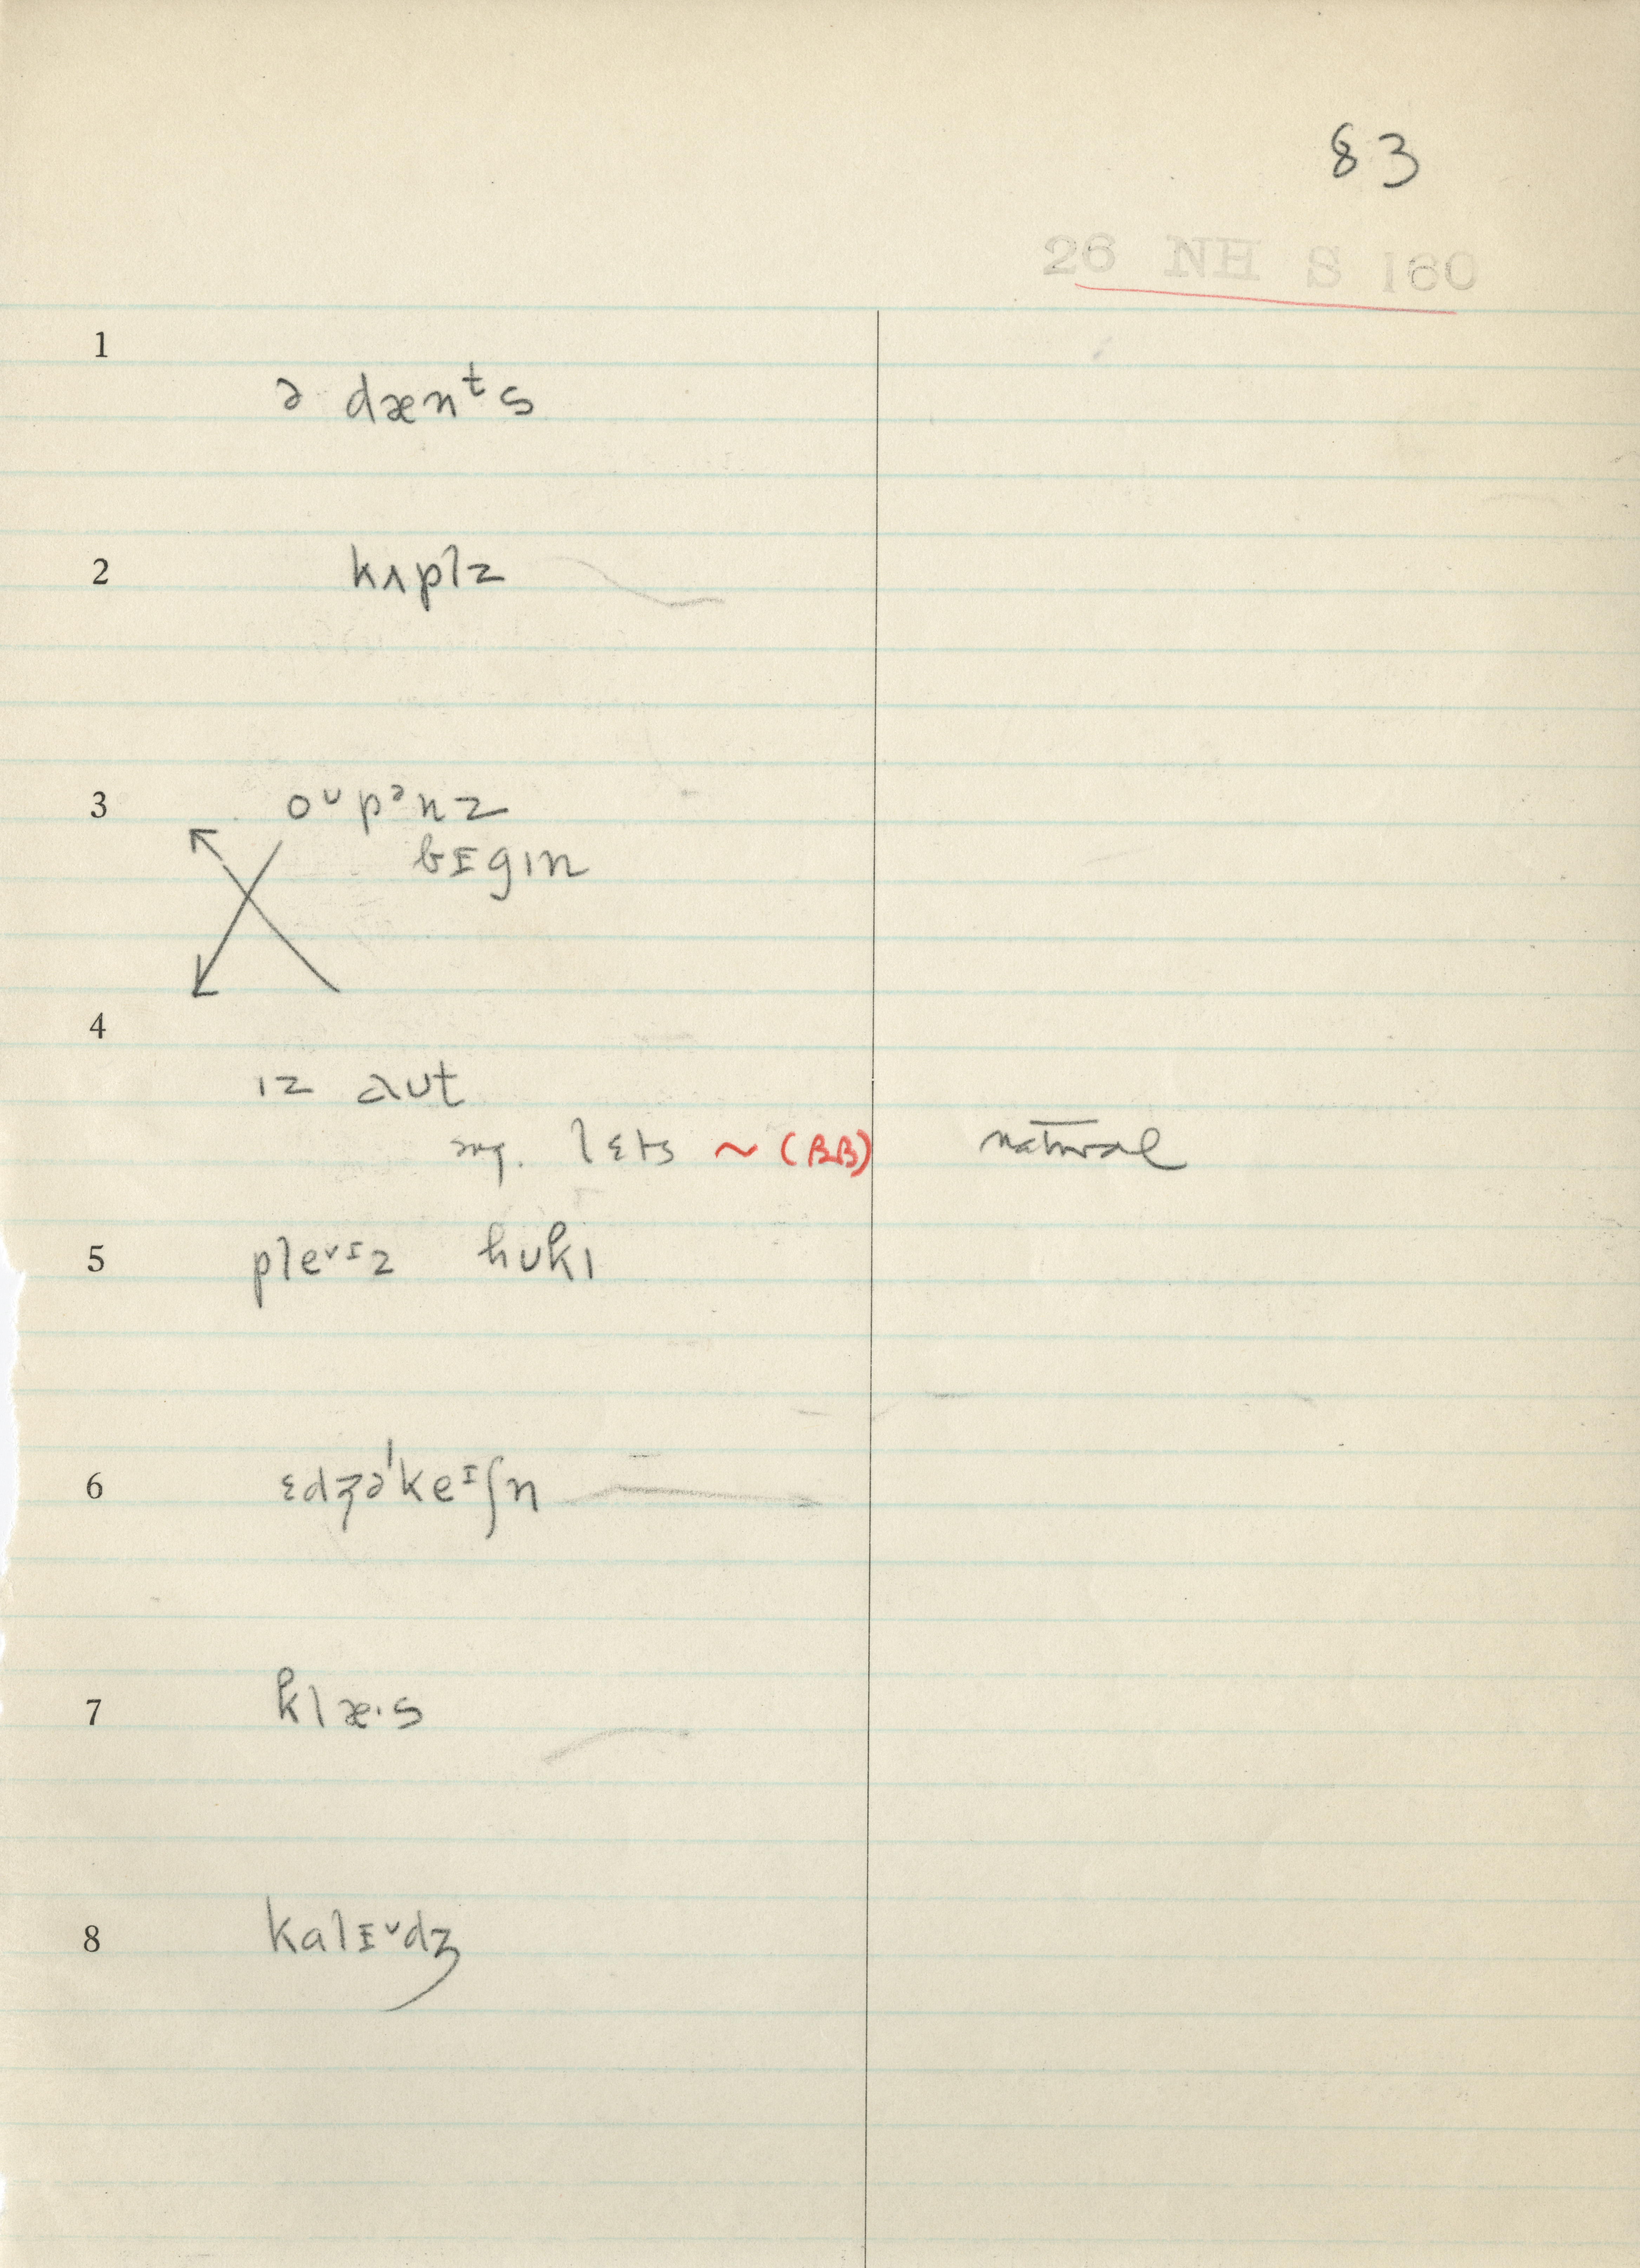 83
26 NH S 160
1
ə dænᵗs
2
kʌplz
3
oᵁpᵊnz
bɪgɪn
4
ɪz aʊt
sug. lɛts ~ (BB) natural
5
pleᵛᶦz hʊkɪ
6
ɛdʒəˈkeᶦʃn
7
klæ·s
8
kalɪᵛdʒ